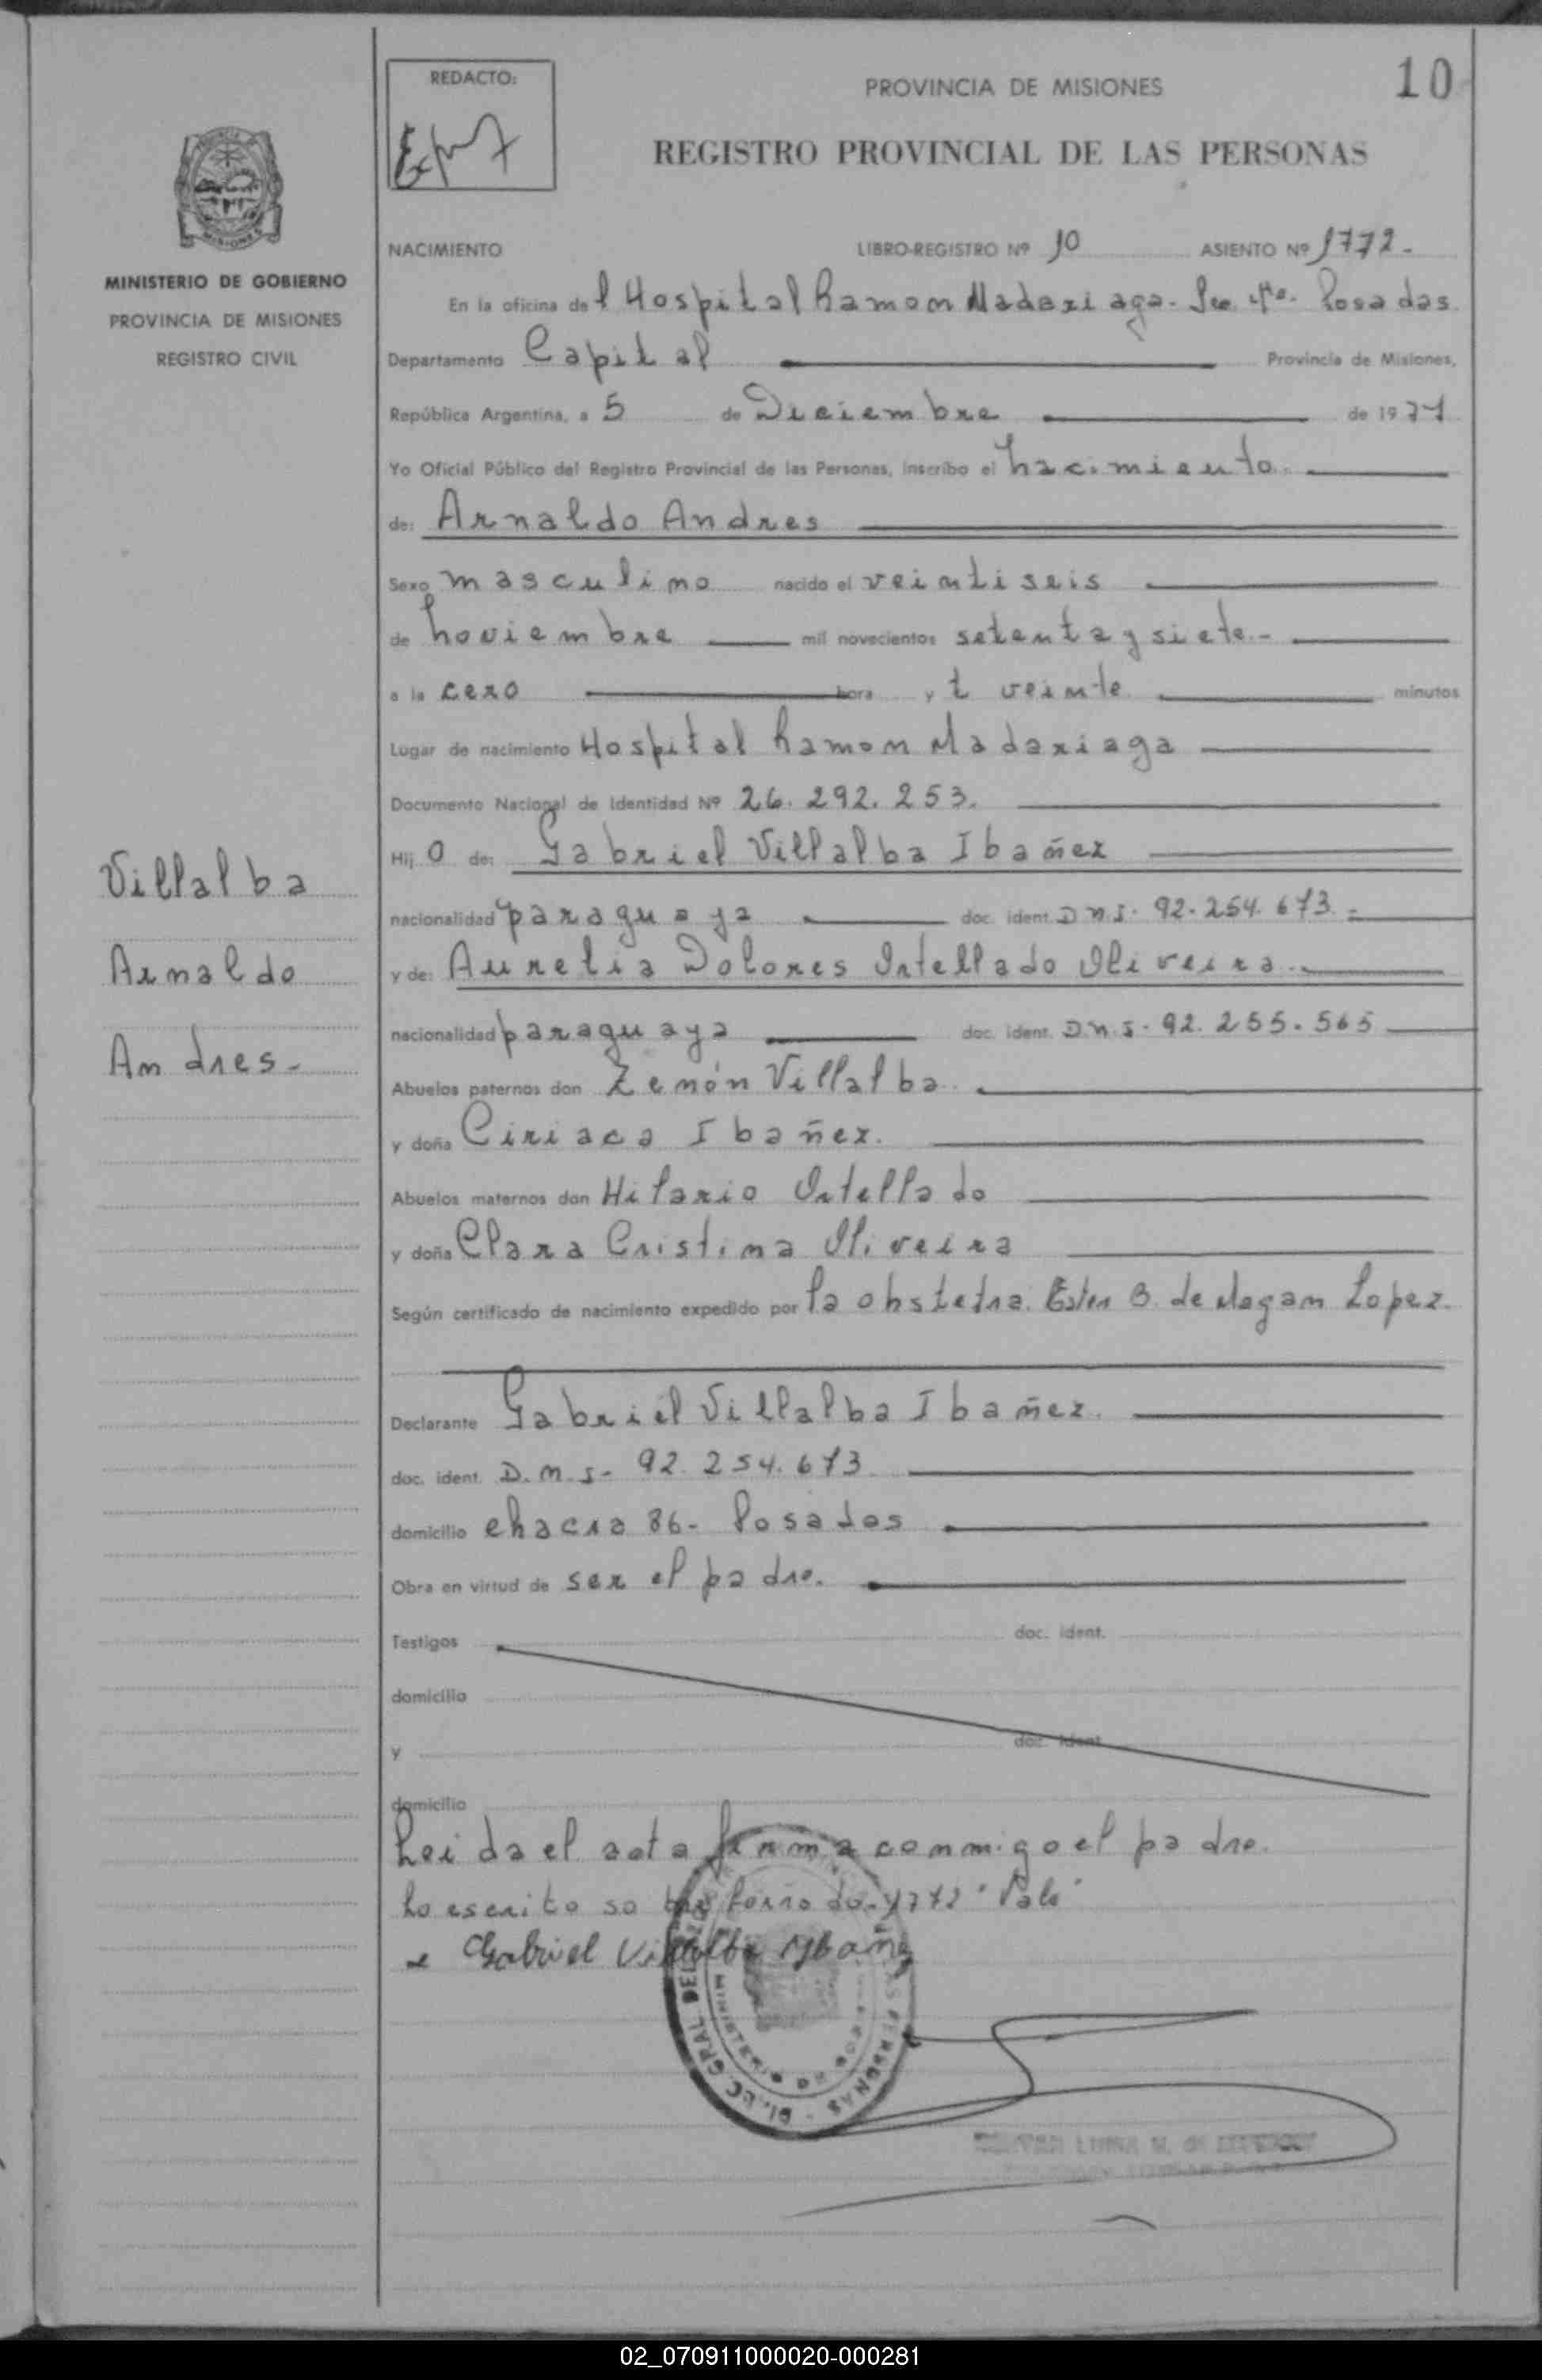 10
REDACTO:
PROVINCIA DE MISIONES
REGISTRO PROVINCIAL DE LAS PERSONAS
MINISTERIO DE GOBIERNO
PROVINCIA DE MISIONES
REGISTRO CIVIL
NACIMIENTO LIBRO-REGISTRO Nº 10 ASIENTO Nº 1772.-
En la oficina del Hospital Ramon Madariaga - Sec. 4ta. Posadas
Departamento Capital Provincia de Misiones,
República Argentina, a 5 de Diciembre de 1977
Yo Oficial Público del Registro Provincial de las Personas, inscribo el nacimiento
de: Arnaldo Andres
Sexo masculino nacido el veintiseis
de noviembre mil novecientos setenta y siete.-
a la cero hora y t veinte minutos
Lugar de nacimiento Hospital Ramon Madariaga
Documento Nacional de Identidad Nº 26.292.253.
Hij o de: Gabriel Villalba Ibañez
Villalba
Arnaldo
Andres-
nacionalidad paraguaya doc. ident. D.N.I. 92.254.673.-
y de: Aurelia Dolores Ortellado Oliveira.-
nacionalidad paraguaya doc. ident. D.N.I- 92.255.565
Abuelos paternos don Zenón Villalba
y doña Ciriaca Ibañez.
Abuelos maternos don Hilario Ortellado
y doña Clara Cristina Oliveira
Según certificado de nacimiento expedido por la obstetra. Ester B. de Lopez.
Declarante Gabriel Villalba Ibañez.
doc. ident. D.N.I- 92.254.673
domicilio chacra 86- Posadas
Obra en virtud de ser el padre.
Testigos doc. ident.
domicilio
y doc. ident.
domicilio
Leida el acta firma conmigo el padre.
Lo escrito sobre 1772 "Vale"
Gabriel Villalba Ybañez
02_070911000020-000281